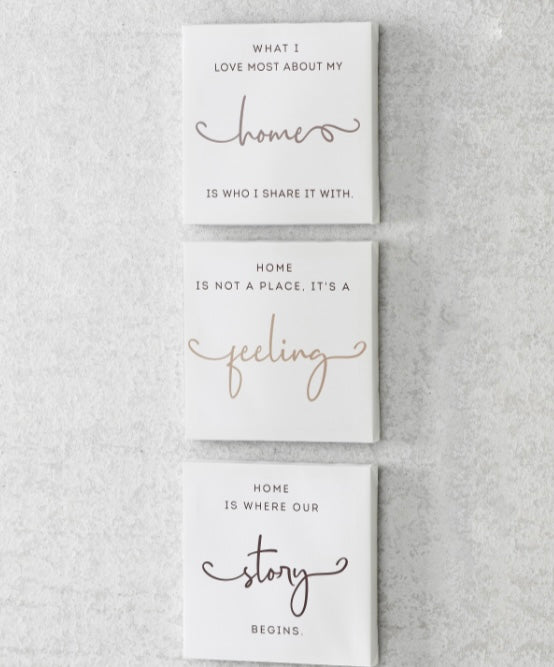 WHAT I
LOVE MOST ABOUT MY
home
IS WHO I SHARE IT WITH.
HOME
IS NOT A PLACE, IT'S A
feeling
HOME
IS WHERE OUR
story
BEGINS.